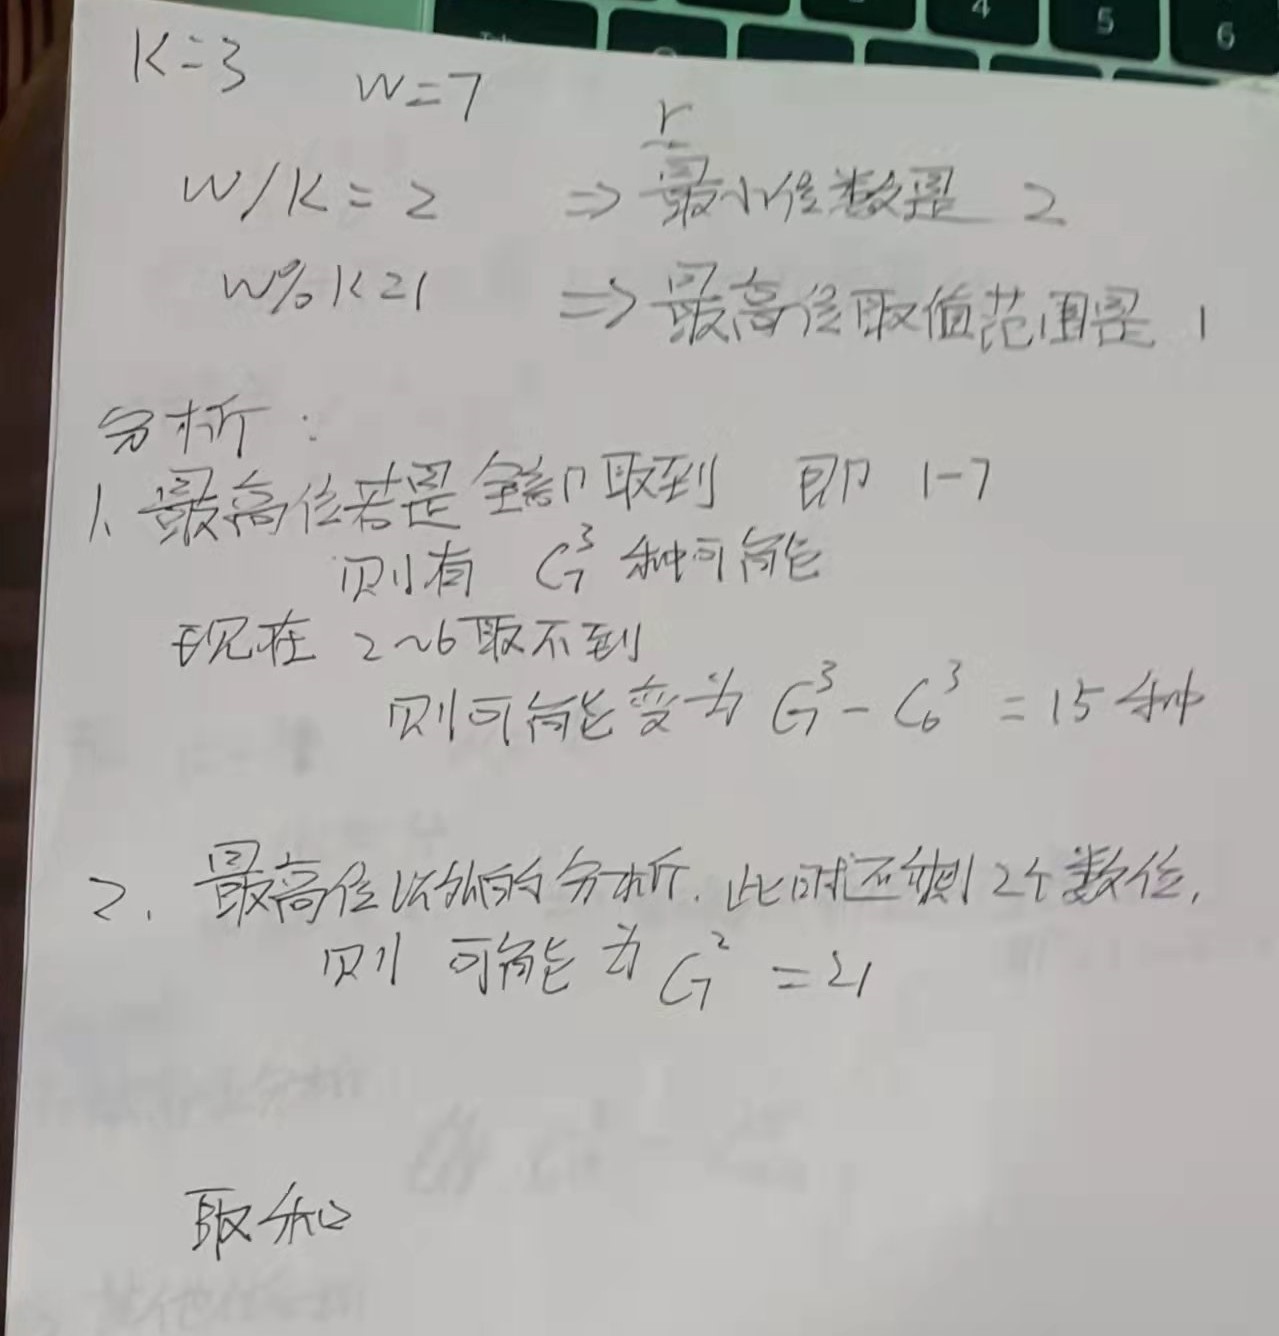 4 5 6
K=3 W=7
r
W/K=2 ⇒ 最小位数是 2
W%K=1 ⇒ 最高位取值范围是 1
分析:
1、最高位若是全部取到 即 1-7
则有 C₇³ 种可能
现在 2~6 取不到
则可能变为 C₇³ - C₆³ = 15 种
2. 最高位以外的分析. 此时还剩 2个数位,
则 可能为 C₇² = 21
取和